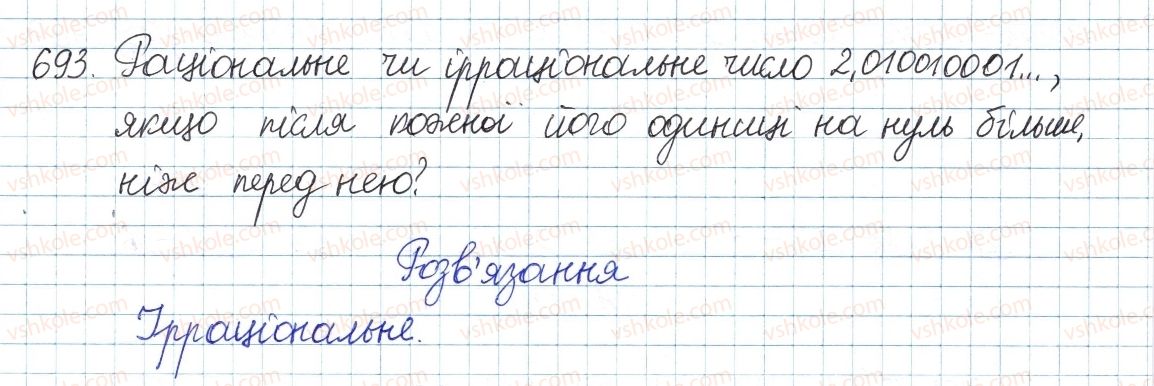 693. Раціональне чи ірраціональне число 2,010010001...,
якщо після кожної його одиниці на нуль більше,
ніж перед нею?
Розв'язання
Ірраціональне.